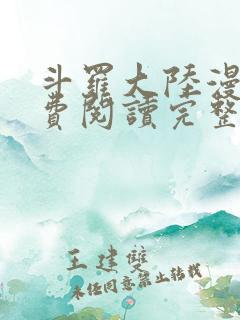 斗羅大陸漫
費閱讀完整
王建雙
未經同意禁止轉載